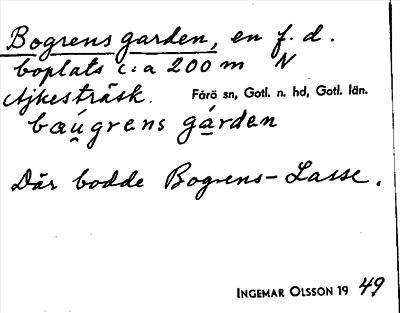 Bogrens garden, en f. d.
boplats c:a 200 m N
Ajkesträsk. Fårö sn, Gotl. n. hd, Gotl. län.
baú̯grens gá̱rden
Där bodde Bogrens-Lasse.
INGEMAR OLSSON 1949